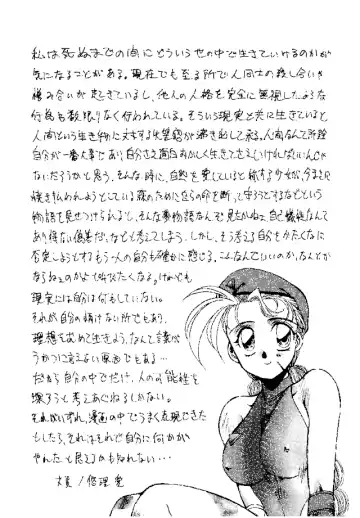 私は死ぬまでの間にどういう世の中で生きていけるのかが
気になることがある。現在でも至る所で人間同士の殺し合いや
憎み合いが起きているし、他人の人格を完全に無視したような
行為も数限りなく行われている。そういう現実と共に生きていると
人間という生き物に対する失望感が湧き出して来る。人間なんて所詮
自分が一番大事であり、自分さえ面白おかしく生きてさえいければいいんじゃ
ないだろうかと思う。そんな時に、自然を愛していると称する少女が、今まさに
焼き払われようとしている森のために自らの命を断って守ろうとするなどという
物語を見せつけられると、そんな夢物語なんて見たかねェ、自己犠牲なんて
あり得ない偽善だ、などと考えてしまう。しかし、そう考える自分をかたくなに
否定しようとするもう一人の自分も確かに感じる。こんなんでいいのか、なんとか
ならねェのかよと叫びたくなる。けれども
現実には自分は何もしていない。
それが自分の情けない所でもあり、
理想を求めて生きよう、なんて言葉が
うかつに言えない原因でもある…
だから自分の中でだけ、人の可能性を
探ろうと考えあぐねるしかない。
それがいずれ、漫画の中でうまく表現できた
としたら、それはそれで自分に何かが
やれたと思えるかも知れない…